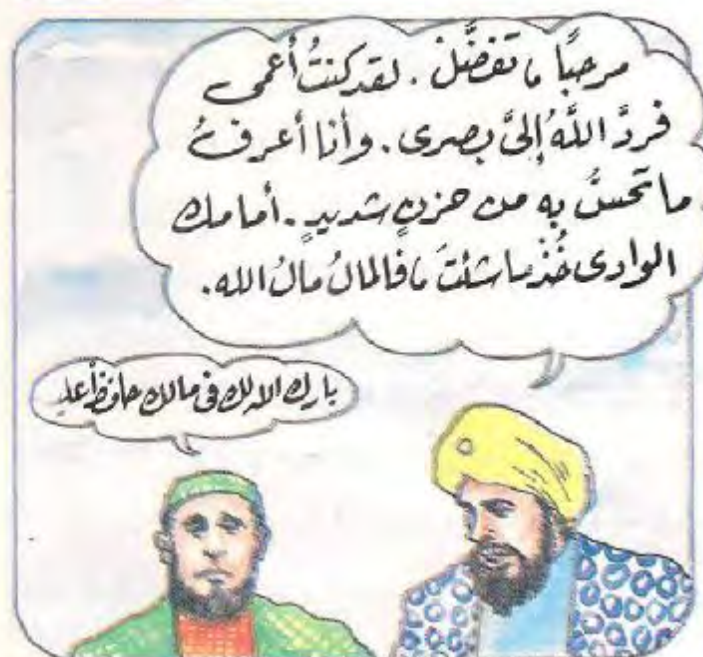 مرحبًا ، تفضَّلْ . لقد كنتُ أعمى
فردَّ اللَّهُ إلىَّ بصرى . وأنا أعرفُ
ما تحسُّ به من حزنٍ شديدٍ . أمامك
الوادى خُذْ ما شئتَ ، فالمالُ مالُ الله .
بارك الله لك فى مالك